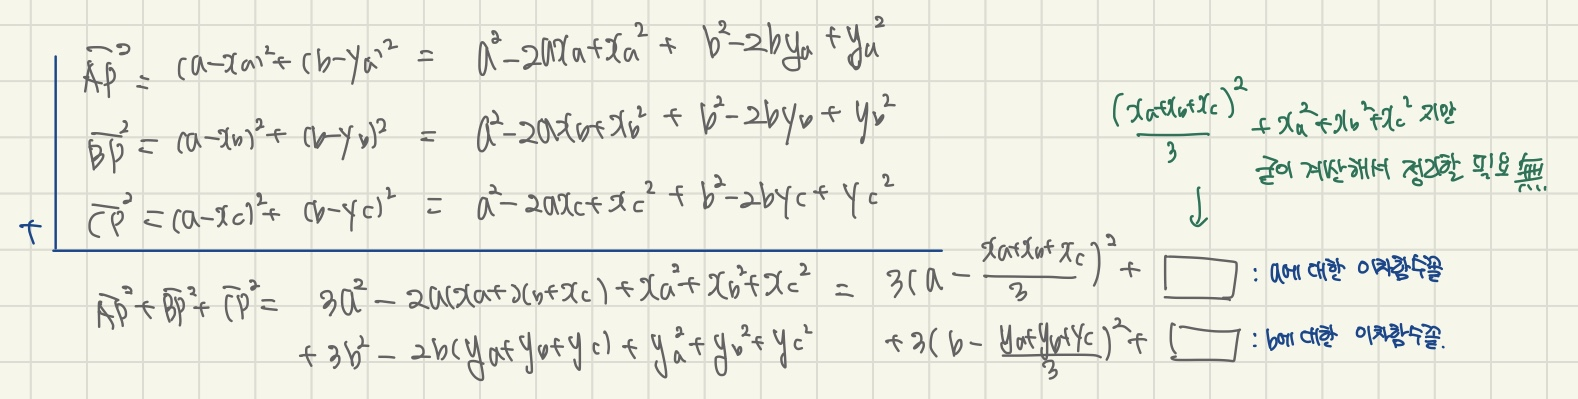 AP² = (a-xa)²+(b-ya)² = a²-2axa+xa² + b²-2bya+ya²
BP² = (a-xb)²+(b-yb)² = a²-2axb+xb² + b²-2byb+yb²
+ CP² = (a-xc)²+(b-yc)² = a²-2axc+xc² + b²-2byc+yc²
AP²+BP²+CP² = 3a²-2a(xa+xb+xc)+xa²+xb²+xc² = 3(a - (xa+xb+xc)/3)² + □ : a에 대한 이차함수꼴
+3b²-2b(ya+yb+yc)+ya²+yb²+yc² +3(b - (ya+yb+yc)/3)² + □ : b에 대한 이차함수꼴.
(xa+xb+xc)²/3 + xa²+xb²+xc² 지만
굳이 계산해서 정리할 필요 無..
↓